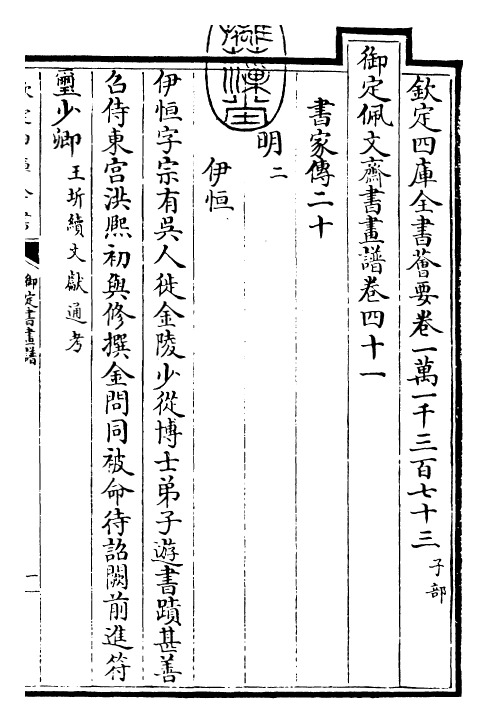 欽定四庫全書薈要卷一萬一千三百七十三 子部
御定佩文齋書畫譜卷四十一
書家傳二十
明二
伊恒
伊恒字宗有吳人徙金陵少從博士弟子遊書蹟甚善
召侍東宫洪熙初與修撰金問同被命待詔闕前進符
璽少卿 王圻續文獻通考
御定書畫譜